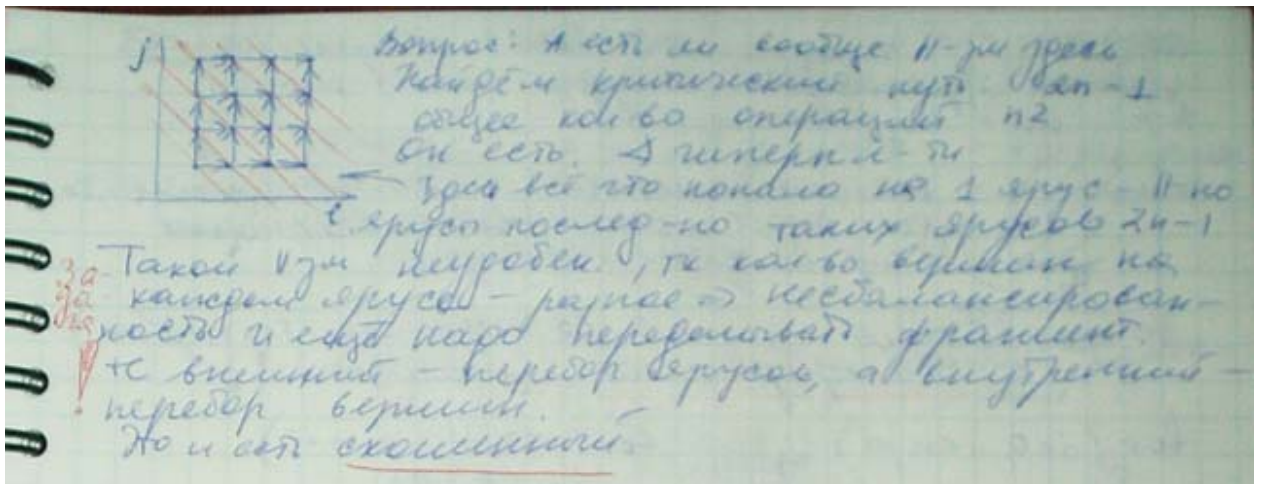 j
Вопрос: А есть ли вообще ||-зм здесь
Найдём критический путь 2n-1
общее кол-во операций n2
Он есть.
Здесь всё что попало на 1 ярус - ||-но
i ярусы послед-но таких ярусов 2n-1
За Такой ||зм неудобен, тк кол-во вершин на
да каждом ярусе - разное => несбалансирован-
ча ность и ещё надо переделывать фрагмент.
! тк внешний - перебор ярусов, а внутренний -
перебор вершин.
Это и есть скошенный